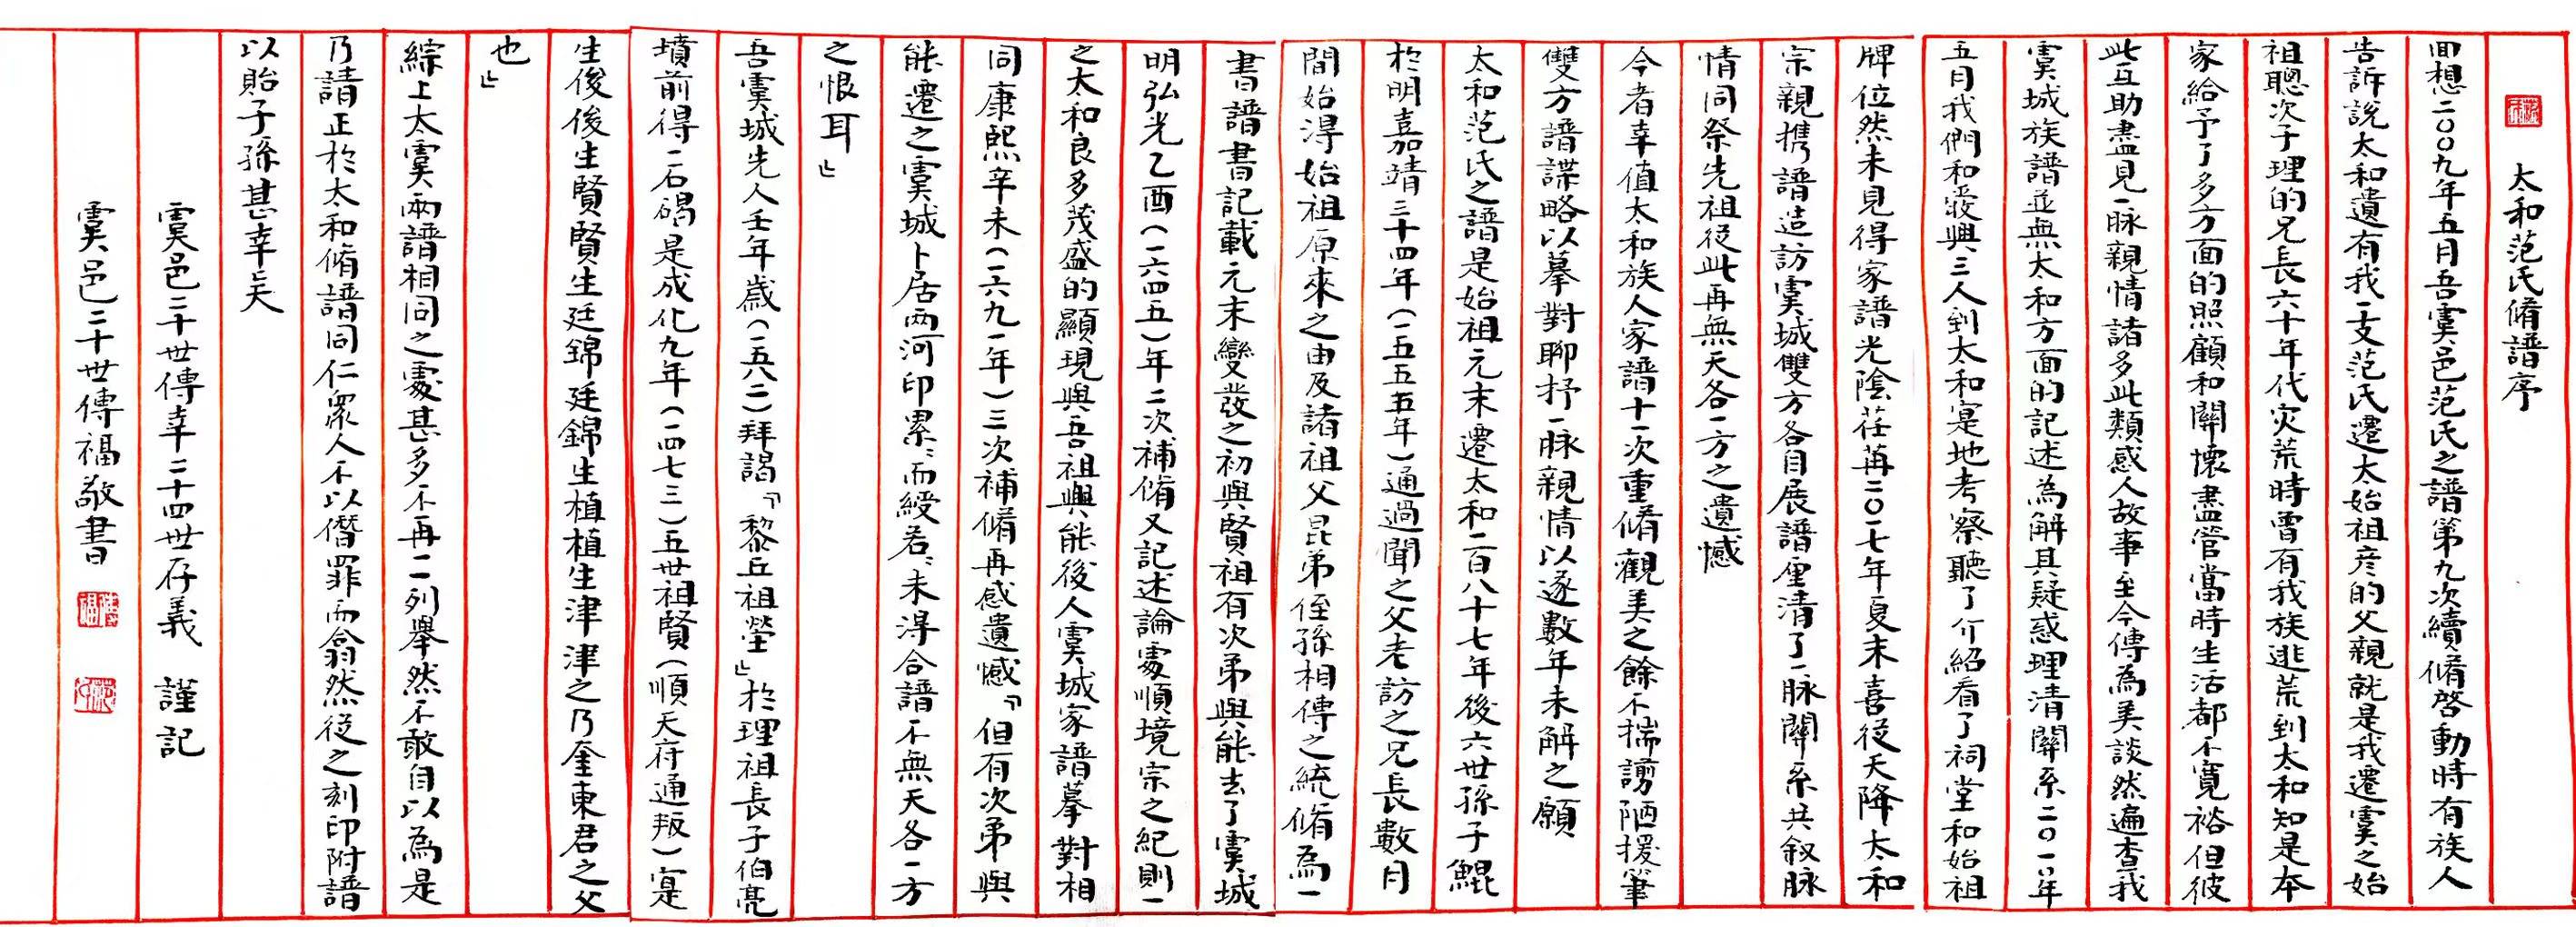 太和范氏脩譜序
回想二〇〇九年五月吾虞邑范氏之譜第九次續脩啓動時有族人
告訴說太和遺有我一支范氏遷太始祖彦的父親就是我遷虞之始
祖聰次子理的兄長六十年代灾荒時曾有我族逃荒到太和知是本
家給予了多方面的照顧和關懷盡管當時生活都不寬裕但彼
此互助盡見一脉親情諸多此類感人故事至今傳為美談然遍查我
虞城族譜並無太和方面的記述為解其疑惑理清關系二〇一〇年
五月我們和愛興三人到太和寔地考察聽了介紹看了祠堂和始祖
牌位然未見得家譜光陰荏苒二〇一七年夏末喜從天降太和
宗親携譜造訪虞城雙方各自展譜厘清了一脉關系共叙脉
情同祭先祖從此再無天各一方之遺憾
今者幸值太和族人家譜十一次重脩觀美之餘不揣謭陋援筆
雙方譜諜略以摹對聊抒一脉親情以遂數年未解之願
太和范氏之譜是始祖元末遷太和二百八十七年後六世孫子鯤
於明嘉靖三十四年（一五五五年）通過聞之父老訪之兄長數月
間始得始祖原來之由及諸祖父昆弟侄孫相傳之統脩為一
書譜書記載元末變發之初與賢祖有次弟與能去了虞城
明弘光乙酉（一六四五）年二次補脩又記述論處順境宗之紀則一
之太和良多茂盛的顯現與吾祖與能後人虞城家譜摹對相
同康熙辛未（一六九一年）三次補脩再感遺憾「但有次弟與
能遷之虞城卜居西河印累〻而綬若〻未得合譜不無天各一方
之恨耳」
吾虞城先人壬年歲（一五八二）拜謁「黎丘祖塋」於理祖長子伯亮
墳前得一石碣是成化九年（一四七三）五世祖賢（順天府通叛）寔
生俊俊生賢賢生廷錦廷錦生植植生津津之乃奎東君之父
也」
綜上太虞兩譜相同之處甚多不再一一列舉然不敢自以為是
乃請正於太和脩譜同仁眾人不以僭罪而翕然從之刻印附譜
以貽子孫甚幸矣
虞邑二十世傳幸二十四世存義　謹記
虞邑二十世傳福敬書